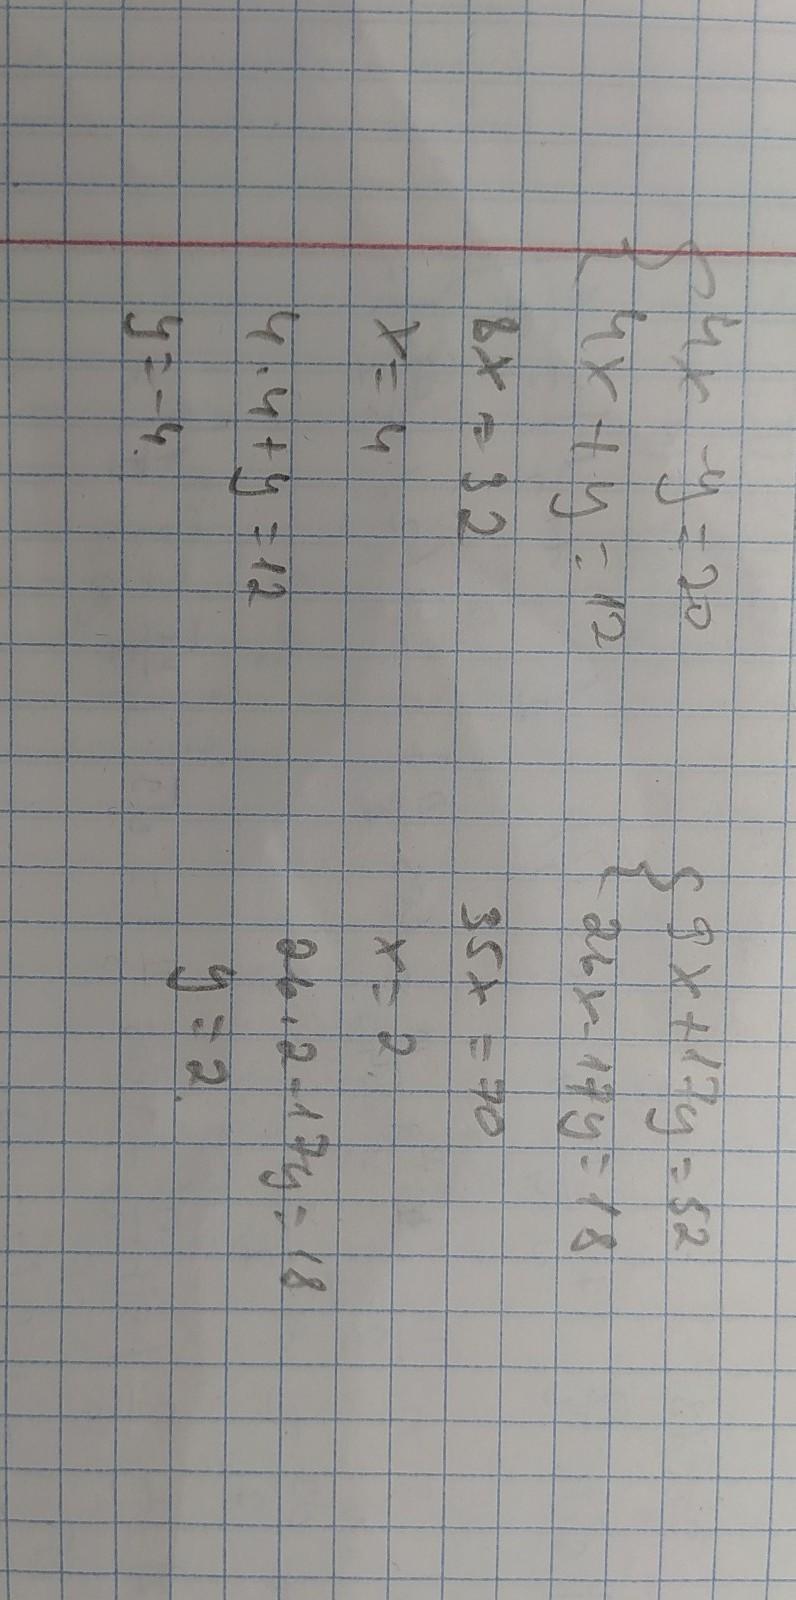 4x - y = 20
4x + y = 12
8x = 32
x = 4
4 · 4 + y = 12
y = -4.
9x + 17y = 52
26x - 17y = 18
35x = 70
x = 2.
26 · 2 - 17y = 18
y = 2.